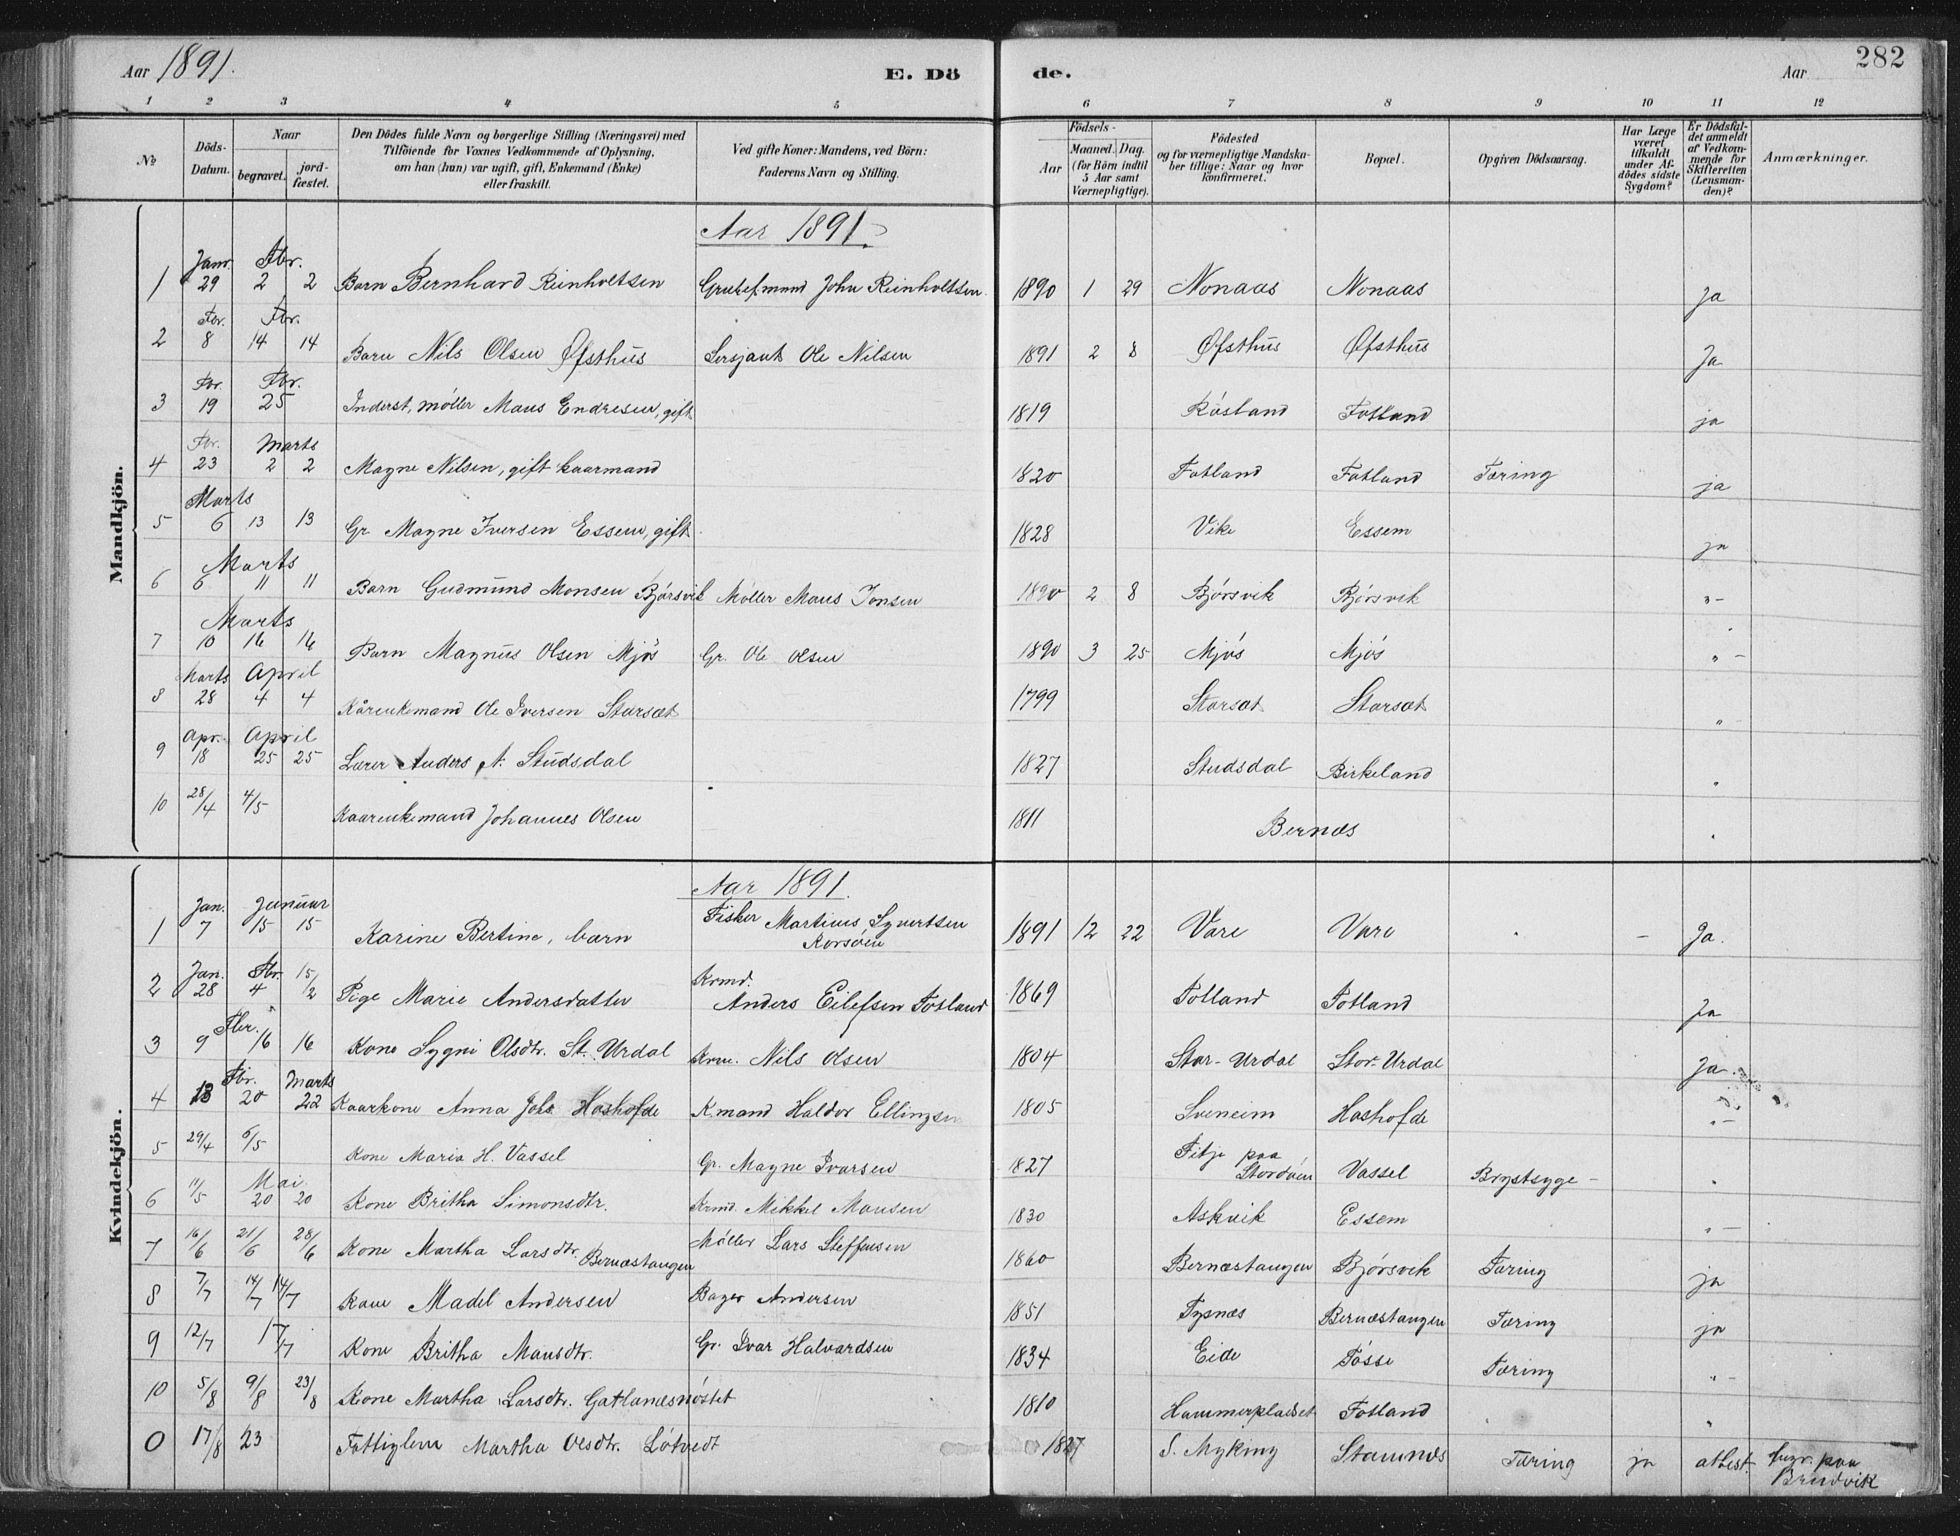 Aar 1891. E. Dö de. Aar 282
1 2 3 4 5 6 7 8 9 10 11 12
No
Döds-Datum.
Naar
begravet.
jord-fæstet.
Den Dödes fulde Navn og borgerlige Stilling (Næringsvei) med
Tilföiende for Voxnes Vedkommende af Oplysning,
om han (hun) var ugift, gift, Enkemand (Enke)
eller fraskilt.
Ved gifte Koner: Mandens, ved Börn:
Faderens Navn og Stilling.
Födsels-
Aar
Maaned. Dag.
(for Börn indtil
5 Aar samt
Værnepligtige).
Födested
og for værnepligtige Mandska-
ber tillige: Naar og hvor
konfirmeret.
Bopæl.
Opgiven Dödsaarsag.
Har Læge
været
tilkaldt
under Af-
dödes sidste
Sygdom?
Er Dödsfal-
det anmeldt
af Vedkom-
mende for
Skifteretten
(Lensman-
den)?
Anmærkninger.
Mandkjön.
Aar 1891.
1 Janr. 29 Fbr. 2 2 Barn Bernhard Reinholtsen Grubef.mand John Reinholtsen. 1890 1 29 Nonaas Nonaas ja
2 Fbr. 8 Fbr. 14 14 Barn Nils Olsen Øfsthus Sersjant Ole Nilsen 1891 2 8 Øfsthus Øfsthus Ja
3 Fbr. 19 Fbr. 25 Inderst, møller Mans Endresen, gift 1819 Røsland Fotland ja
4 Fbr. 23 Marts 2 2 Magne Nilsen, gift kaarmand 1820 Fotland Fotland Tæring ja
5 Marts 6 13 13 Gr. Magne Iversen Essem, gift 1828 Vike Essem ja
6 Marts 6 11 11 Barn Gudmund Monsen Bjørsvik Møller Mons Jonsen 1890 2 8 Bjørsvik Bjørsvik "-
7 Marts 10 16 16 Barn Magnus Olsen Mjøs Gr. Ole Olsen 1890 3 25 Mjøs Mjøs "-
8 Marts 28 April 4 4 Kårenkemand Ole Iversen Storsæt 1799 Storsæt Storsæt "
9 Apr. 18 April 25 25 Lærer Anders A. Studsdal 1827 Studsdal Birkeland "
10 28/4 4/5 Kaarenkemand Johannes Olsen 1811 Bernæs "
Kvindekjön.
Aar 1891.
1 Jan. 7 Januar 15 15 Karine Bertine, barn Fisker Martinus Syvertsen Korsøen 1891 12 22 Vare Vare - Ja.
2 Jan. 28 Fbr. 4 15/2 Pige Marie Andersdatter Krmd. Anders Eilefsen Fotland 1869 Fotland Fotland Ja
3 Fbr. 9 16 16 Kone Sygni Olsdtr. St. Urdal Krm. Nils Olsen 1804 Stor-Urdal Stor-Urdal Ja
4 13 Fbr. 20 Marts 22 Kaarkone Anna Johs Hoshofde K.mand Haldor Ellingsen 1805 Sveneim Hoshofde "-
5 29/4 6/5 Kone Maria H. Vassel Gr. Magne Ivarsen 1827 Fitje paa Stordøen Vassel Brystsyge - "
6 11/5 Mai 20 20 Kone Britha Simonsdtr. Krmd. Mikkel Monsen 1830 Askvik Essem "-
7 16/6 21/6 28/6 Kone Martha Larsdtr. Bernæstangen Møller Lars Steffensen 1860 Bernæstangen Bjørsvik Tæring ja
8 7/7 14/7 14/7 Kone Madel Andersen Bager Andersen 1851 Tysnæs Bernæstangen Tæring ja
9 12/7 17/7 Kone Britha Mansdtr. Gr. Ivar Halvardsen 1834 Eide Fosse Tæring "-
10 5/8 9/8 23/8 Kone Martha Larsdtr. Gatlanesnøstet 1810 Hammerpladset Fotland "
0 17/8 23 Fattiglem Martha Olsdtr. Løtvedt 1827 S. Myking Stamnes Tæring ja attest. paa Bruvik